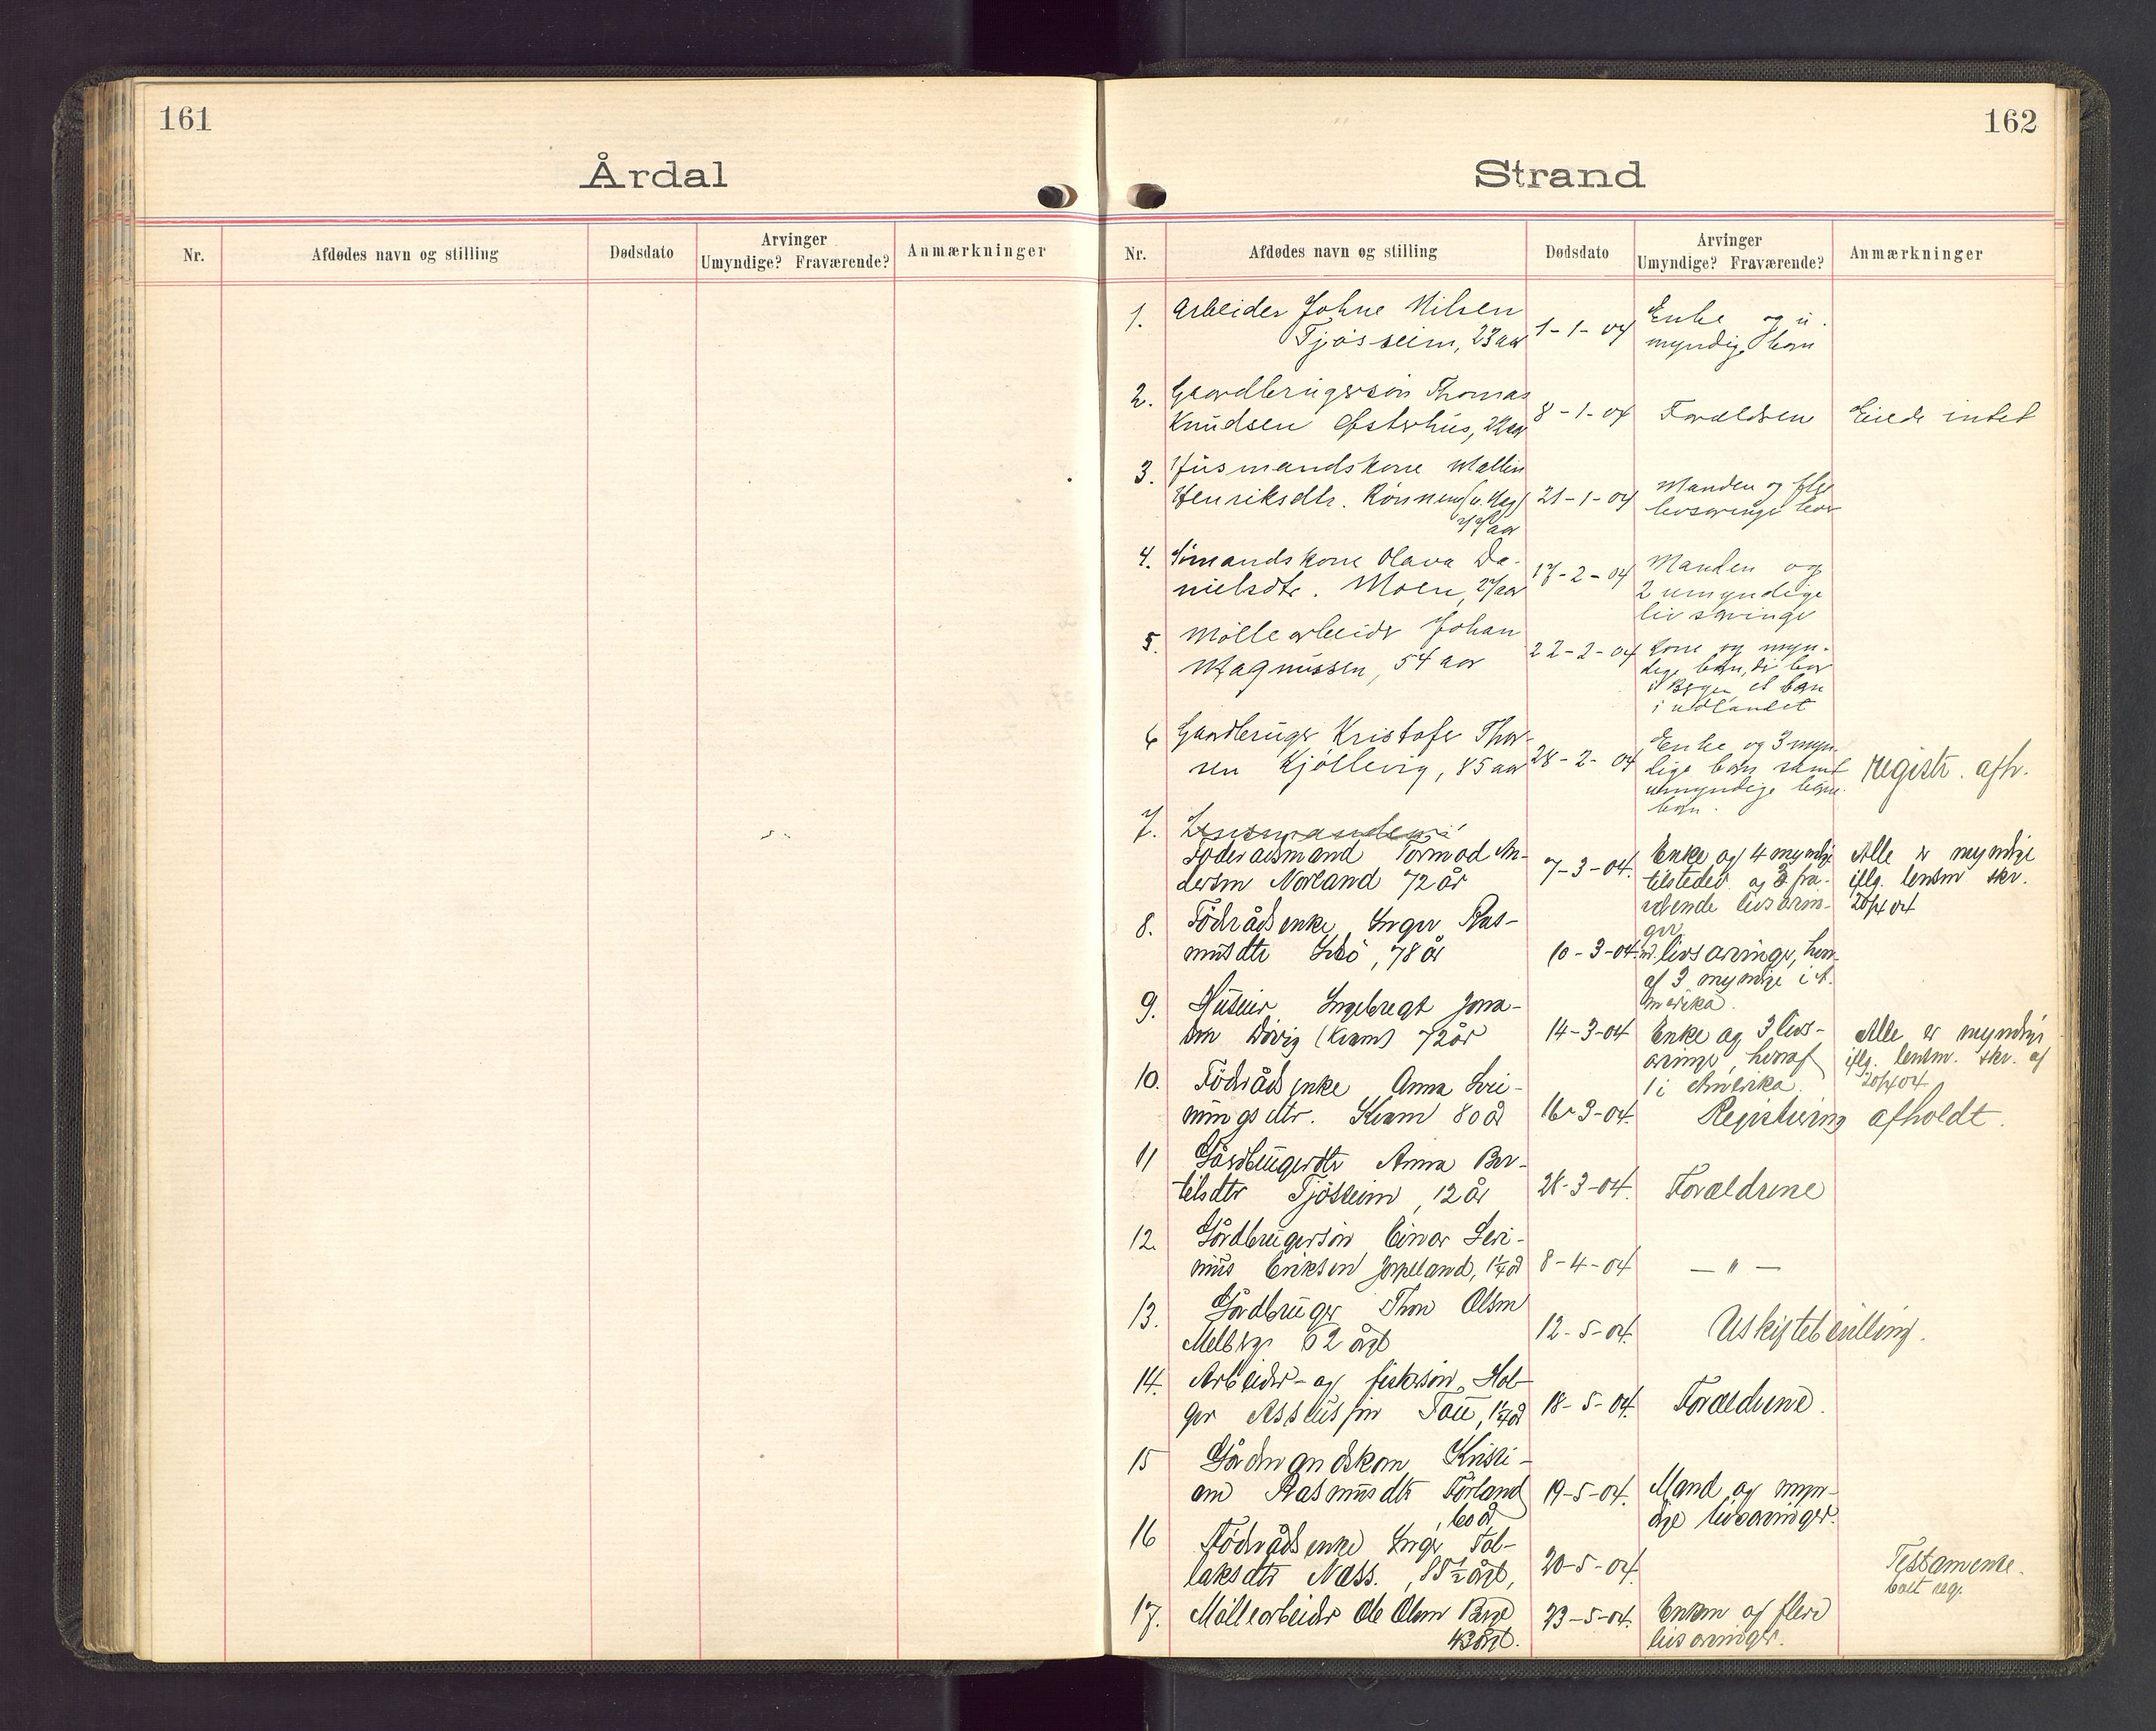 161
Årdal
Nr.
Afdødes navn og stilling
Dødsdato
Arvinger
Umyndige? Fraværende?
Anmærkninger
162
Strand
Nr.
Afdødes navn og stilling
Dødsdato
Arvinger
Umyndige? Fraværende?
Anmærkninger
1. Arbeider Johne Nilsen
Tjøsseim, 23 aar
1-1-04
Enke og u.
myndig barn
2. Gaardbrugersøn Thomas
Knudsen Østerhus, aar
8-1-04
Forældren
Eiede intet
3. Husmandskone Mallin
Henriksdtr. Rønnen
aar
21-1-04
Manden og flere
livsarvinger
4. Sømandskone Olava Da-
nielsdtr. Moen, 27 aar
17-2-04
Manden og
2 umyndige
livsarvinger
5. Møllearbeider Johan
Magnussen, 54 aar
22-2-04
Kone og myn-
dige børn, de bor
i et barn
i udlandet
6 Gaardbruger Kristofer Thor-
sen Kjøllevig, 85 aar
28-2-04
Enke og 3 myn-
dige børn samt
umyndige børne
børn.
registr. afh.
7. Lensmanden i
Føderadsmand Tormod An-
dersen Norland 72 år
7-3-04.
Enke og 4 myndige
tilstede og fra-
værende livsarvin-
ger
Alle er myndige
iflg. lensm skr.
20/4 04
8. Føderådsenke Inger Ras-
musdtr Idsö, 78 år
10-3-04.
livsarvinger, her-
af 3 myndige i A-
merika.
9. Huseier Ingebregt Jona-
sen (Kvam) 72 år
14-3-04
Enke og 3 livs-
arvinger, heraf
1 i Amerika.
Alle er myndige
iflg. lensm. skr. af
20/4 04
10. Føderådsenke Anna Svei-
nungsdtr. Kvam 80 år
16-3-04.
Registrering afholdt.
11 Gårdbrugerdtr Anna Ber-
telsdtr Tjøsseim, 12 år
28-3-04.
Forældrene
12. Gårdbrugersøn Einar Seve-
rius Eriksen Jørpeland, 1¼ år
8-4-04
— " —
13. Gårdbruger Thor Olsen
Melberg 62 årg
12-5-04.
Uskiftebevilling.
14. Arbeider- og fiskersøn Hol-
ger Tau, 1¼ år
18-5-04.
Forældrene.
15 Gårdmandskone Kristi-
ane Rasmusdtr Førland
, 60 år
19-5-04.
Mand og myn-
dige livsarvinger.
16 Føderådsenke Inger Tol-
laksdtr Næss., 85½ årg,
20-5-04.
Testamente.
17. Møllearbeider Ole Olsen Berge
43 årg.
23-5-04.
Enken og flere
livsarvinger.